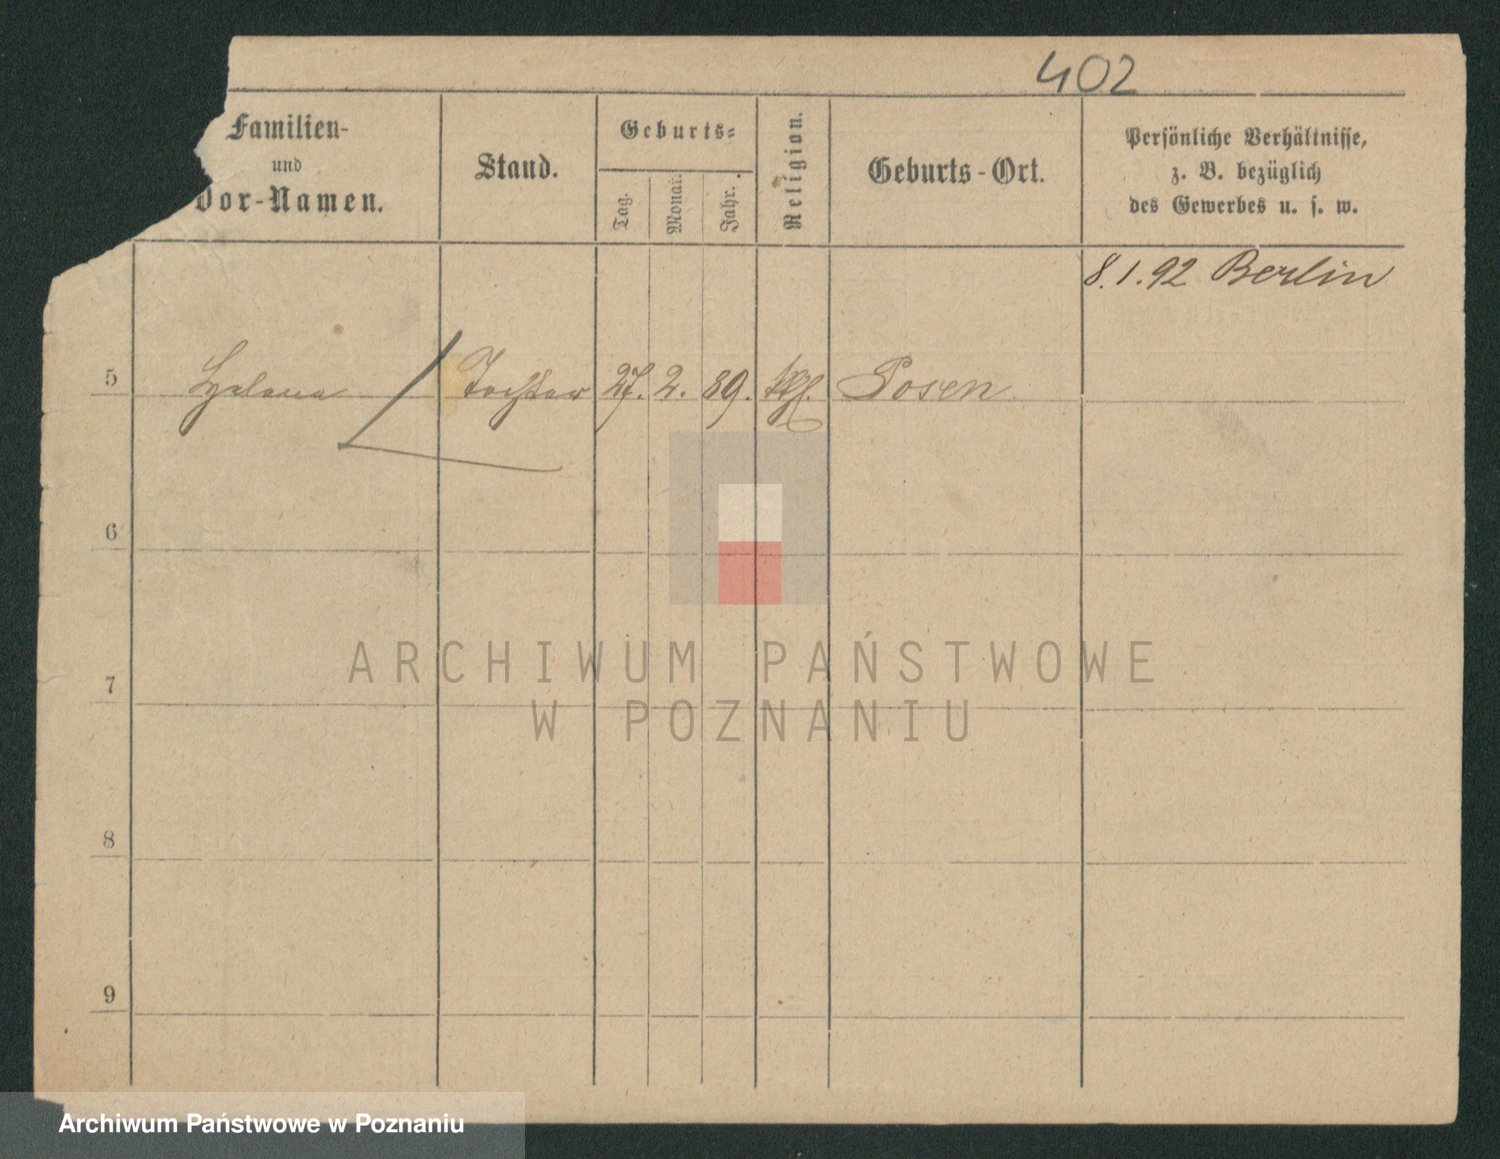 402
Familien-
und
Vor-Namen.
Stand.
Geburts-
Tag.
Monat.
Jahr.
Religion.
Geburts-Ort.
Persönliche Verhältnisse,
z. B. bezüglich
des Gewerbes u. s. w.
8.1.92 Berlin
5 Helena Tochter 27. 2. 89. kth. Posen
6
7
8
9
ARCHIWUM PAŃSTWOWE
W POZNANIU
Archiwum Państwowe w Poznaniu